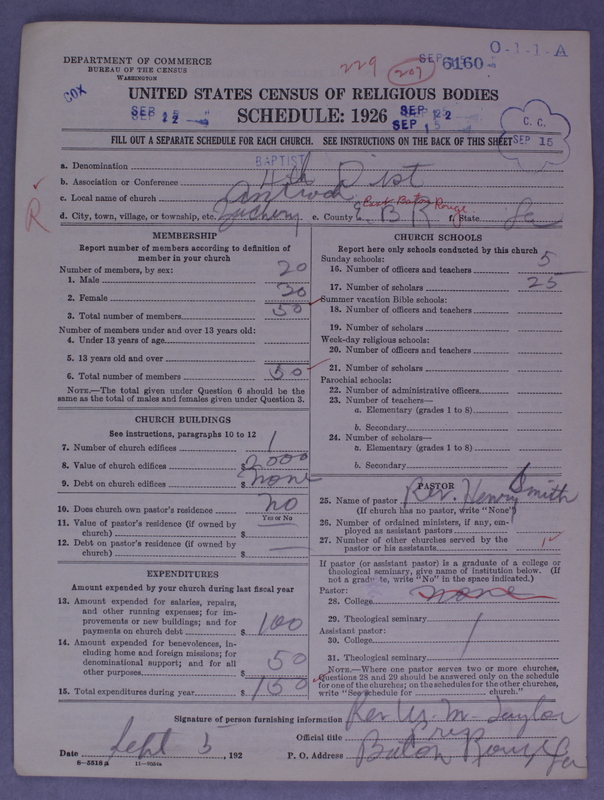 O-1-1-A
229 207 SEP 6160
DEPARTMENT OF COMMERCE
BUREAU OF THE CENSUS
WASHINGTON
COX
UNITED STATES CENSUS OF RELIGIOUS BODIES
SEP 22 SCHEDULE: 1926 SEP 22
SEP 15
C. C.
SEP 15
FILL OUT A SEPARATE SCHEDULE FOR EACH CHURCH. SEE INSTRUCTIONS ON THE BACK OF THIS SHEET
a. Denomination BAPTIST
b. Association or Conference 4th Dist
c. Local name of church Antioch
R
d. City, town, village, or township, etc. Zachery e. County E. B R East Baton Rouge f. State La
MEMBERSHIP
Report number of members according to definition of
member in your church
Number of members, by sex:
1. Male 20
2. Female 30
3. Total number of members 50
Number of members under and over 13 years old:
4. Under 13 years of age
5. 13 years old and over
6. Total number of members 50
NOTE.—The total given under Question 6 should be the
same as the total of males and females given under Question 3.
CHURCH BUILDINGS
See instructions, paragraphs 10 to 12
7. Number of church edifices 1
8. Value of church edifices $ 2000
9. Debt on church edifices $ none
10. Does church own pastor's residence no
Yes or No
11. Value of pastor's residence (if owned by
church) $
12. Debt on pastor's residence (if owned by
church) $ —
EXPENDITURES
Amount expended by your church during last fiscal year
13. Amount expended for salaries, repairs,
and other running expenses; for im-
provements or new buildings; and for
payments on church debt $ 100
14. Amount expended for benevolences, in-
cluding home and foreign missions; for
denominational support; and for all
other purposes $ 50
15. Total expenditures during year $ 150
CHURCH SCHOOLS
Report here only schools conducted by this church
Sunday schools:
16. Number of officers and teachers 5
17. Number of scholars 25
Summer vacation Bible schools:
18. Number of officers and teachers
19. Number of scholars
Week-day religious schools:
20. Number of officers and teachers
21. Number of scholars
Parochial schools:
22. Number of administrative officers
23. Number of teachers—
a. Elementary (grades 1 to 8)
b. Secondary
24. Number of scholars—
a. Elementary (grades 1 to 8)
b. Secondary
PASTOR
25. Name of pastor Rev. Henry Smith
(If church has no pastor, write "None")
26. Number of ordained ministers, if any, em-
ployed as assistant pastors
27. Number of other churches served by the
pastor or his assistants 1
If pastor (or assistant pastor) is a graduate of a college or
theological seminary, give name of institution below. (If
not a graduate, write "No" in the space indicated.)
Pastor:
28. College none
29. Theological seminary
Assistant pastor:
30. College
31. Theological seminary
NOTE.—Where one pastor serves two or more churches,
Questions 28 and 29 should be answered only on the schedule
for one of the churches; on the schedules for the other churches,
write "See schedule for church."
Signature of person furnishing information Rev. M. Taylor
Official title
Date Sept 5, 192 P. O. Address Baton Rouge La
8—5518 a 11—9084a